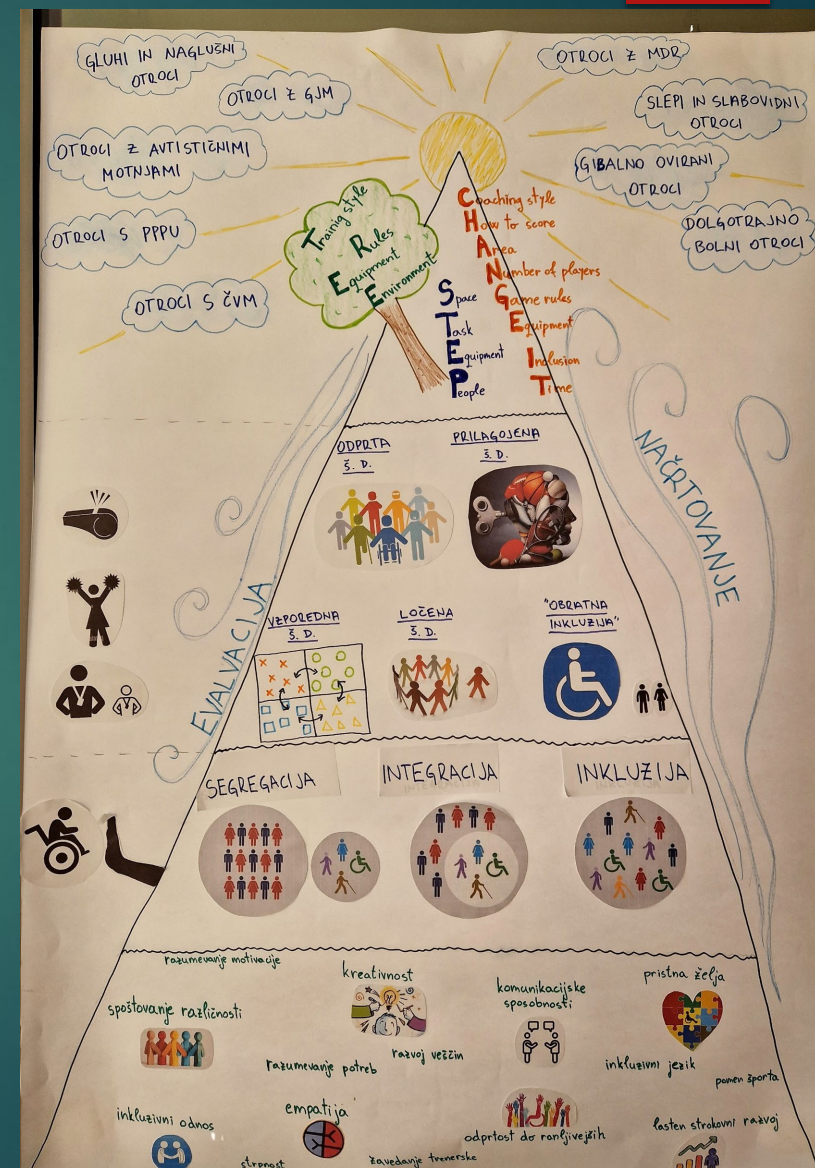 GLUHI IN NAGLUŠNI
OTROCI
OTROCI Z GJM
OTROCI Z AVTISTIČNIMI
MOTNJAMI
OTROCI S PPPU
OTROCI S ČVM
OTROCI Z MDR
SLEPI IN SLABOVIDNI
OTROCI
GIBALNO OVIRANI
OTROCI
DOLGOTRAJNO
BOLNI OTROCI
Trainig style
Rules
Equipment
Environment
Coaching style
How to score
Area
Number of players
Game rules
Equipment
Inclusion
Time
Space
Task
Equipment
People
EVALVACIJA
NAČRTOVANJE
ODPRTA
Š. D.
PRILAGOJENA
Š. D.
VZPOREDNA
Š. D.
LOČENA
Š. D.
"OBRATNA
INKLUZIJA"
SEGREGACIJA
INTEGRACIJA
INKLUZIJA
razumevanje motivacije
kreativnost
komunikacijske
sposobnosti
pristna želja
spoštovanje različnosti
razumevanje potreb
razvoj veščin
inkluzivni jezik
pomen športa
inkluzivni odnos
empatija
odprtost do ranljivejših
lasten strokovni razvoj
strpnost
zavedanje trenerske